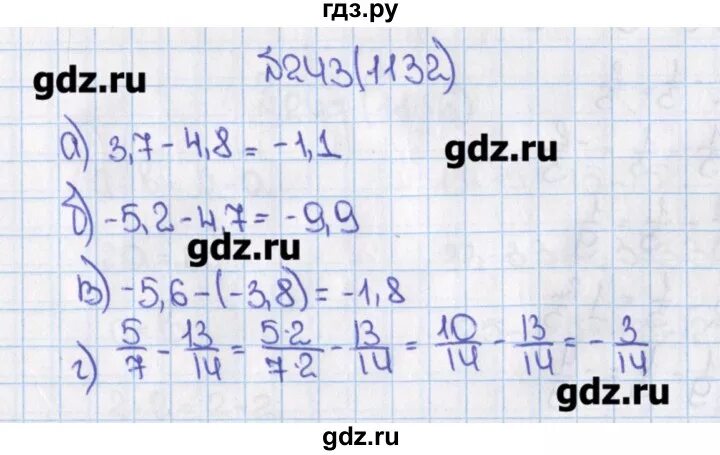 гдз.ру
gdz.ru
№243(1132)
а) 3,7 - 4,8 = -1,1
gdz.ru
б) -5,2 - 4,7 = -9,9
gdz.ru
в) -5,6 - (-3,8) = -1,8
г) 5/7 - 13/14 = 5·2/7·2 - 13/14 = 10/14 - 13/14 = - 3/14
gdz.ru
gdz.ru